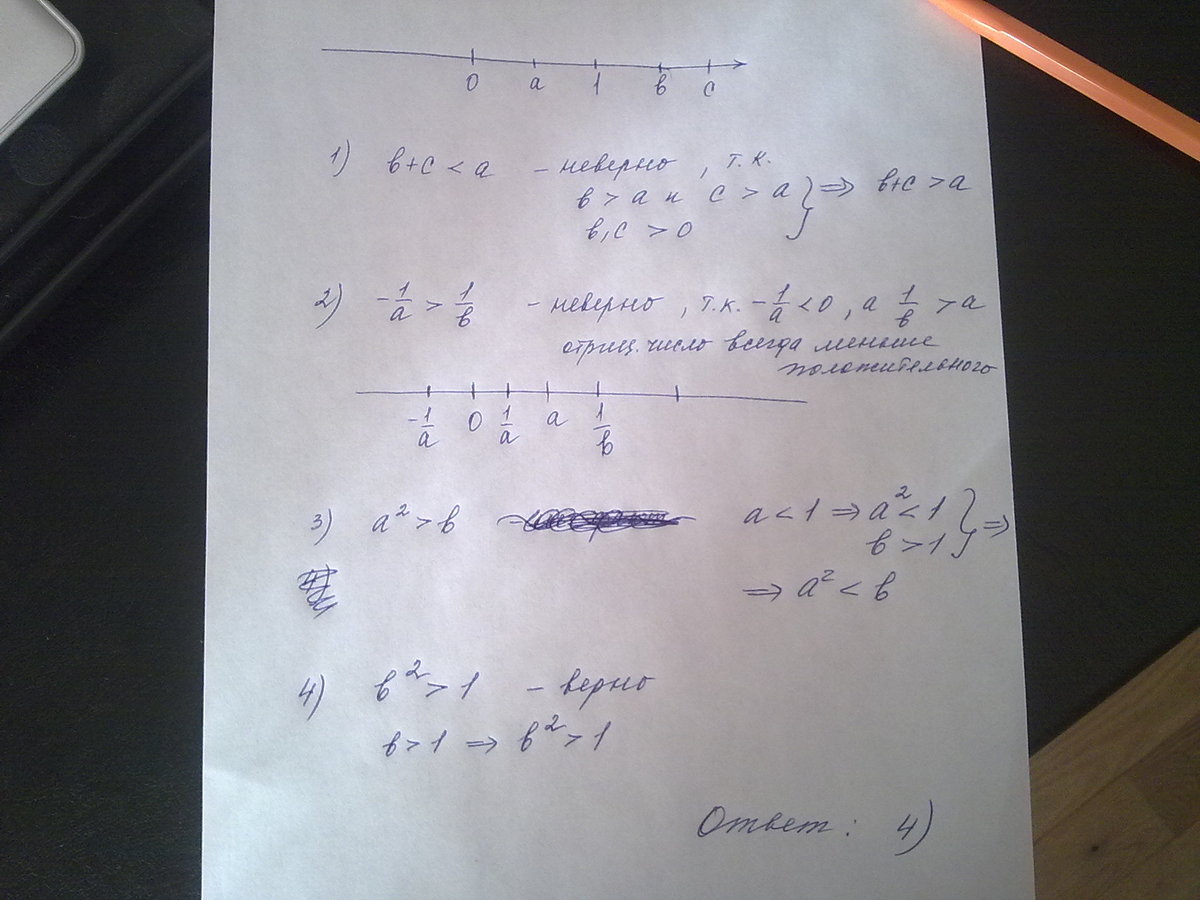 0 a 1 в c
1) в+c < a - неверно, т.к.
в > a и c > a } ⇒ в+c > a
в, c > 0
2) -1/a > 1/в - неверно, т.к. -1/a < 0, а 1/в > a
отриц. число всегда меньше
положительного
-1/a 0 1/a a 1/в
3) a² > в a < 1 ⇒ a² < 1 } ⇒
в > 1
⇒ a² < в
4) в² > 1 - верно
в > 1 ⇒ в² > 1
Ответ: 4)